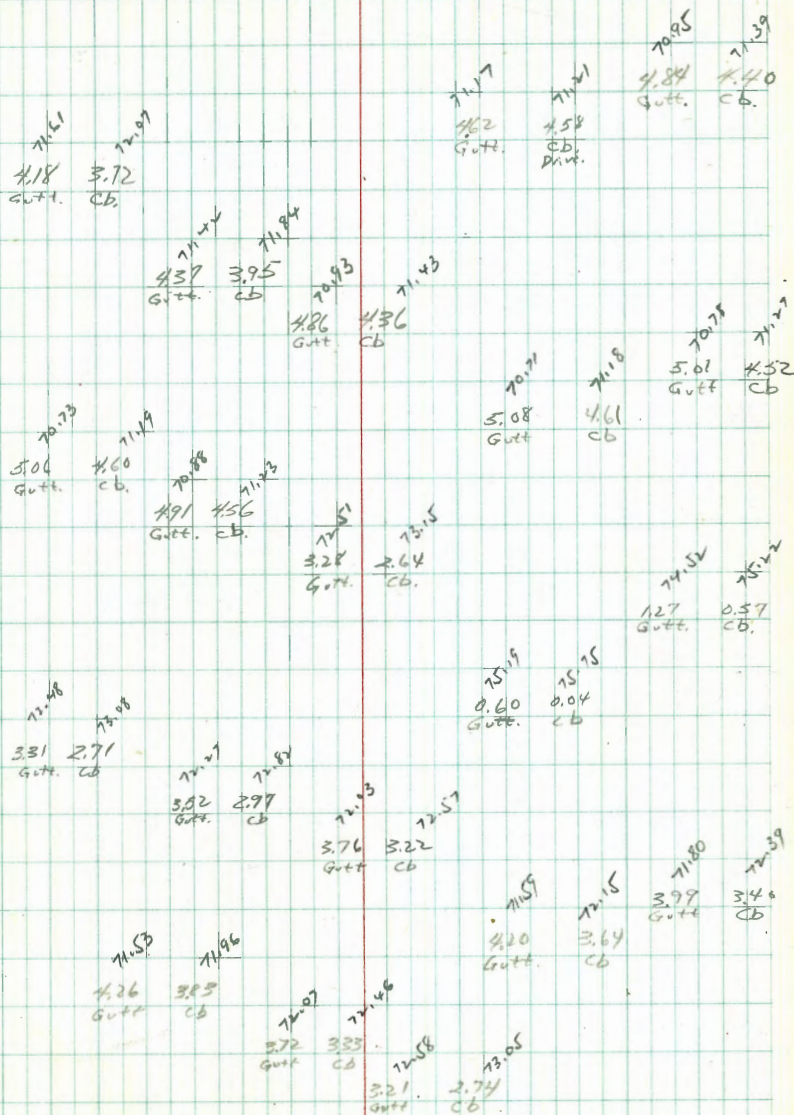 70.95 71.39
4.84 4.40
Gutt. Cb.
71.17 71.21
4.62 4.58
Gutt. Cb.
Driv.
71.61 72.07
4.18 3.72
Gutt. Cb.
71.42 71.84
4.37 3.95
Gutt. Cb
70.93 71.43
4.86 4.36
Gutt Cb
70.78 71.27
5.01 4.52
Gutt Cb
70.71 71.18
5.08 4.61
Gutt Cb
70.73 71.19
5.06 4.60
Gutt. Cb.
70.88 71.23
4.91 4.56
Gutt. Cb.
72.51 73.15
3.28 2.64
Gutt Cb.
74.52 75.22
1.27 0.57
Gutt. Cb.
75.19 75.75
0.60 0.04
Gutt. Cb
72.48 73.08
3.31 2.71
Gutt. Cb
72.27 72.82
3.52 2.97
Gutt. Cb
72.03 72.57
3.76 3.22
Gutt Cb
71.80 72.39
3.99 3.40
Gutt Cb
71.59 72.15
4.20 3.64
Gutt. Cb
71.53 71.96
4.26 3.83
Gutt Cb
72.07 72.46
3.72 3.33
Gutt Cb
72.58 73.05
3.21 2.74
Gutt Cb